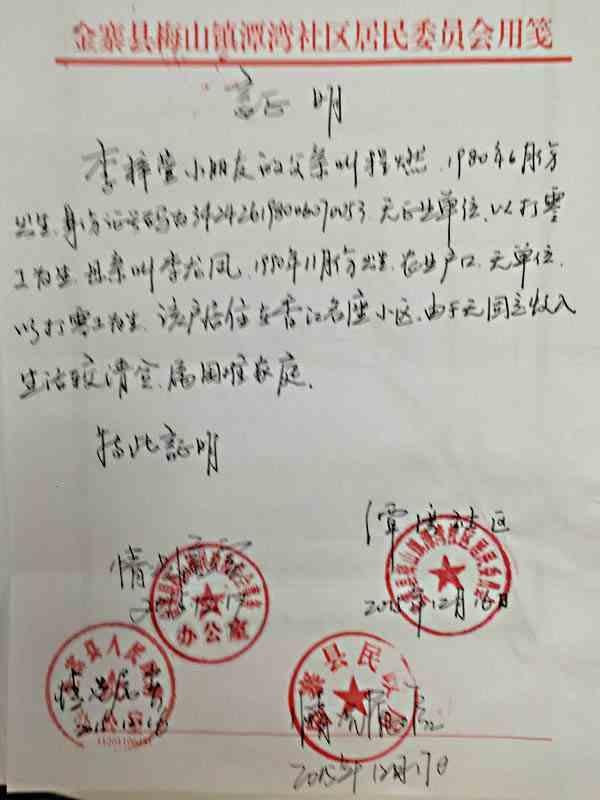 金寨县梅山镇潭湾社区居民委员会用笺
証明
李梓萱小朋友的父亲叫程燃，1980年6月份
出生，身份证号码为342426198006070053，无正业单位，以打零
工为生，母亲叫李龙凤，1980年11月份出生，农业户口，无单位，
以打零工为生，该户居住在香江名座小区，由于无固定收入
生活较清贫，属困难家庭。
特此証明
潭湾社区
情况属实
2015年12月16日
办公室
县人民
寨县民政
情况属实
情况属实
2015年12月17日